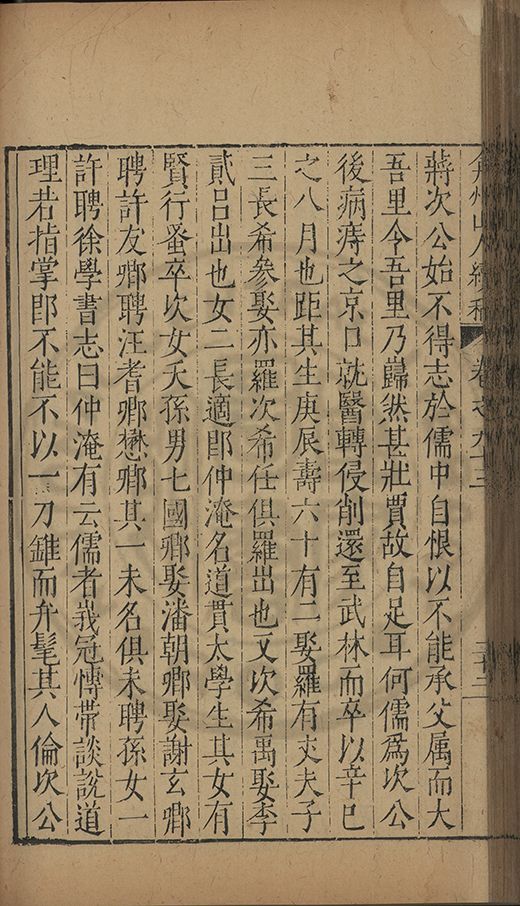 弇州山人續稿 卷之九十三
蔣次公始不得志於儒中自恨以不能承父属而大
吾里令吾里乃巋然甚壯賈故自足耳何儒爲次公
後病痔之京口就醫轉侵削還至武林而卒以辛巳
之八月也距其生庚辰壽六十有二娶羅有丈夫子
三長希參娶亦羅次希任俱羅出也又次希禹娶李
貳呂出也女二長適郎仲淹名道貫太學生其女有
賢行蚤卒次女夭孫男七國卿娶潘朝卿娶謝玄卿
聘許友卿聘汪耆卿懋卿其一未名俱未聘孫女一
許聘徐學書志曰仲淹有云儒者峩冠愽帶談說道
理若指掌郎不能不以一刀錐而弁髦其人倫次公